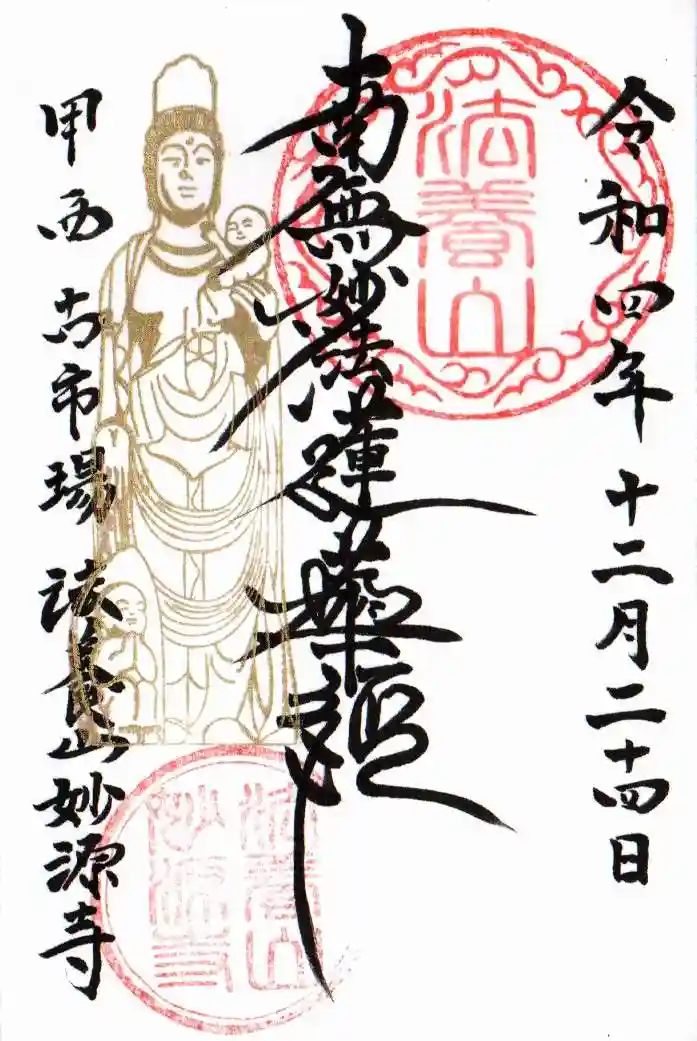 令和四年十二月二十四日
法養山
南無妙法蓮華経
甲西 古市場 法養山妙源寺
法養山
妙源寺